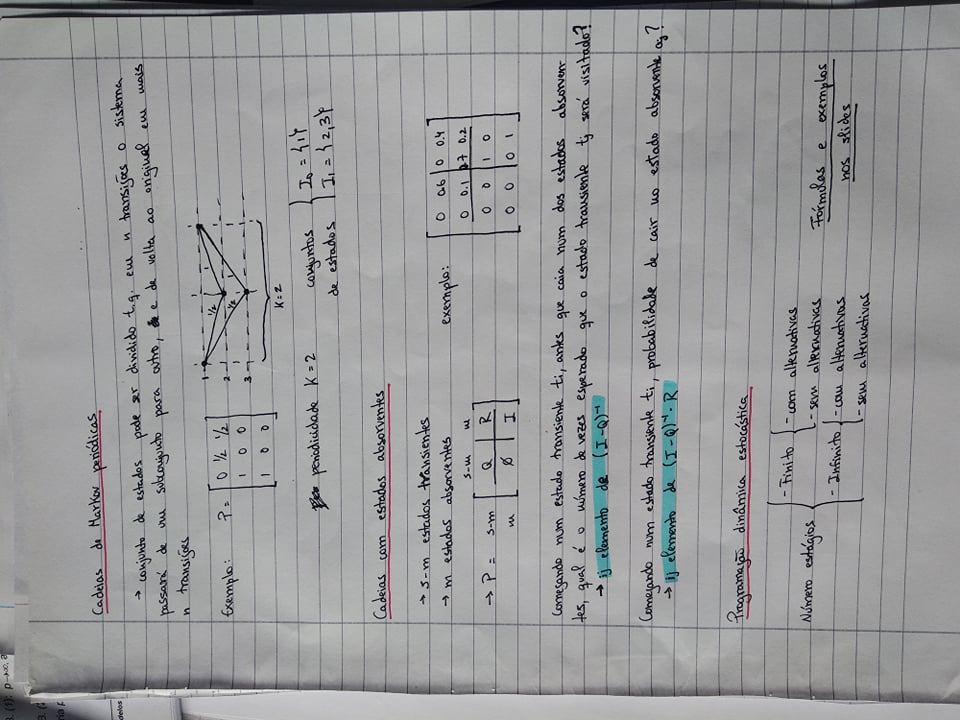 3. (1): p→∞, a
3. (2
ria p
delos
Cadeias de Markov periódicas
→ conjunto de estados pode ser dividido t.q. em n transições o sistema
passará de um subconjunto para outro, e de volta ao original em mais
n transições
Exemplo: P = [ 0 1/2 1/2
1 0 0
1 0 0 ]
1
2
3
1/2
1/2
1
1
K=2
periodicidade K=2
conjuntos de estados { I₀ = {1}
I₁ = {2,3}
Cadeias com estados absorventes
→ s-m estados transientes
→ m estados absorventes
exemplo:
0 0.6 | 0 0.4
0 0.1 | 0.7 0.2
0 0 | 1 0
0 0 | 0 1
s-m m
→ P = s-m [ Q | R
m ∅ | I ]
Começando num estado transiente ti, antes que caia num dos estados absorven
tes, qual é o número de vezes esperado que o estado transiente tj será visitado?
→ ij elemento de (I-Q)⁻¹
Começando num estado transiente ti, probabilidade de cair no estado absorvente aj?
→ ij elemento de (I-Q)⁻¹·R
Programação dinâmica estocástica
Número estágios
- Finito
- com alternativas
- sem alternativas
- Infinito
- com alternativas
- sem alternativas
Fórmulas e exemplos
nos slides